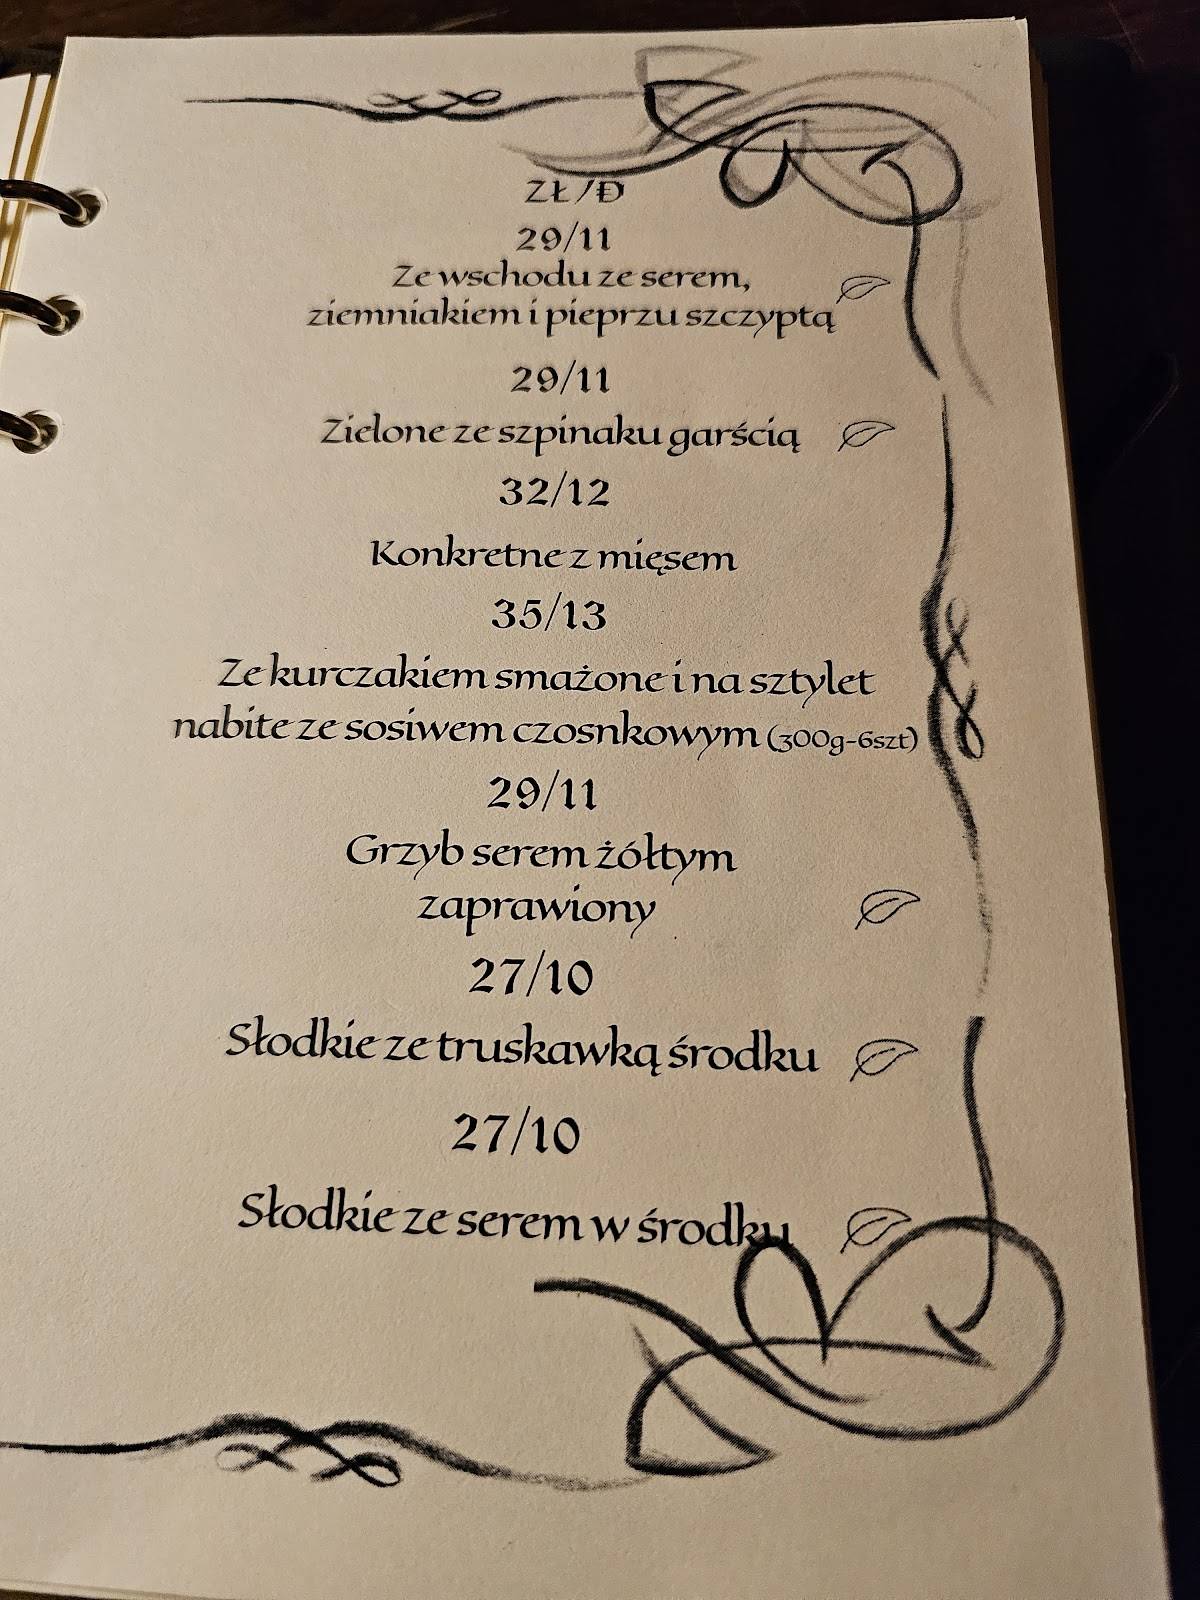 ZŁ/Đ
29/11
Ze wschodu ze serem,
ziemniakiem i pieprzu szczyptą
29/11
Zielone ze szpinaku garścią
32/12
Konkretne z mięsem
35/13
Ze kurczakiem smażone i na sztylet
nabite ze sosiwem czosnkowym (300g-6szt)
29/11
Grzyb serem żółtym
zaprawiony
27/10
Słodkie ze truskawką środku
27/10
Słodkie ze serem w środku